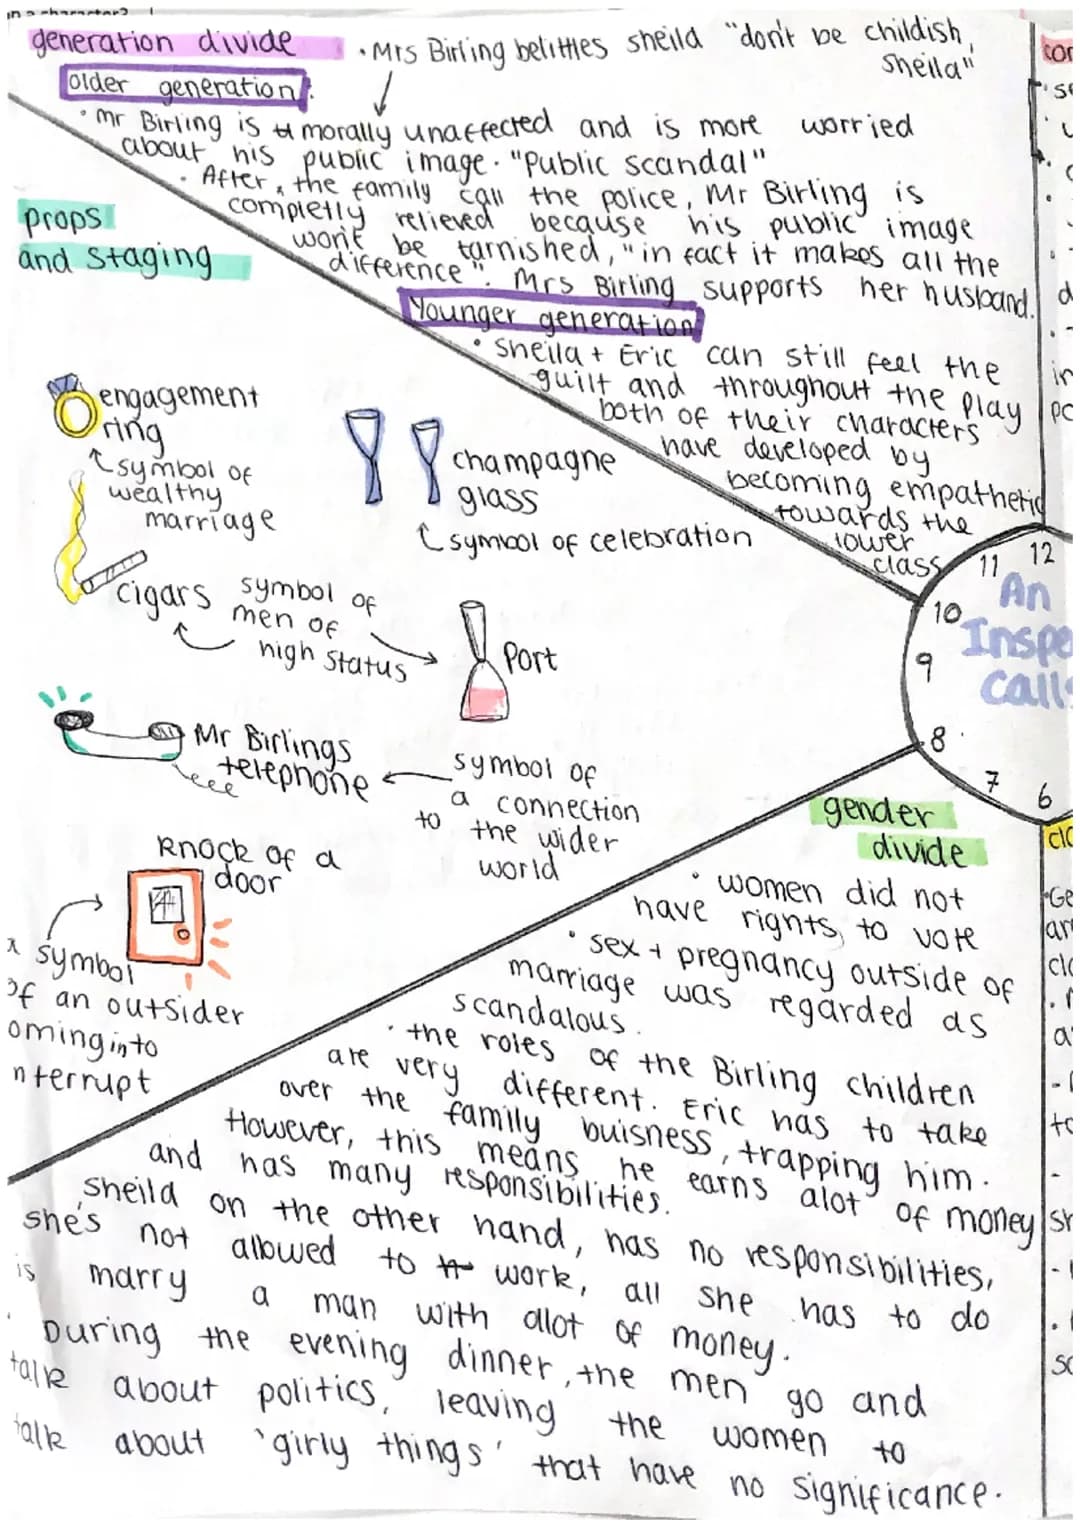 in a character?
generation divide
• Mrs Birling belittles sheila "don't be childish,
Sheila"
older generation:
• mr Birling is morally unaffected and is more worried
about his public image. "Public scandal"
• After, the family call the police, Mr Birling is
completly relieved because his public image
won't be tarnished, "in fact it makes all the
difference". Mrs Birling supports her husband.
Younger generation
• Sheila + Eric can still feel the
guilt and throughout the play
both of their characters
have developed by
becoming empathetic
towards the
lower
class
props
and staging
engagement
ring
symbol of
wealthy
marriage
champagne
glass
symbol of celebration
cigars
symbol of
men of
high status
Port
Mr Birlings
telephone
symbol of
a connection
to the wider
world
Knock of a
door
symbol
of an outsider
oming into
nterrupt
12
11
10
9
8
7
6
An
Inspe
Calls
gender
divide
• women did not
have rights to vote
• sex + pregnancy outside of
marriage was regarded as
scandalous.
• the roles of the Birling children
are very different. Eric has to take
over the family buisness, trapping him.
However, this means he earns alot of money
and has many responsibilities.
Sheila on the other hand, has no responsibilities,
she's not allowed to work, all she has to do
is marry a man with allot of money.
• During the evening dinner, the men go and
talk about politics, leaving the women to
talk about 'girly things' that have no significance.